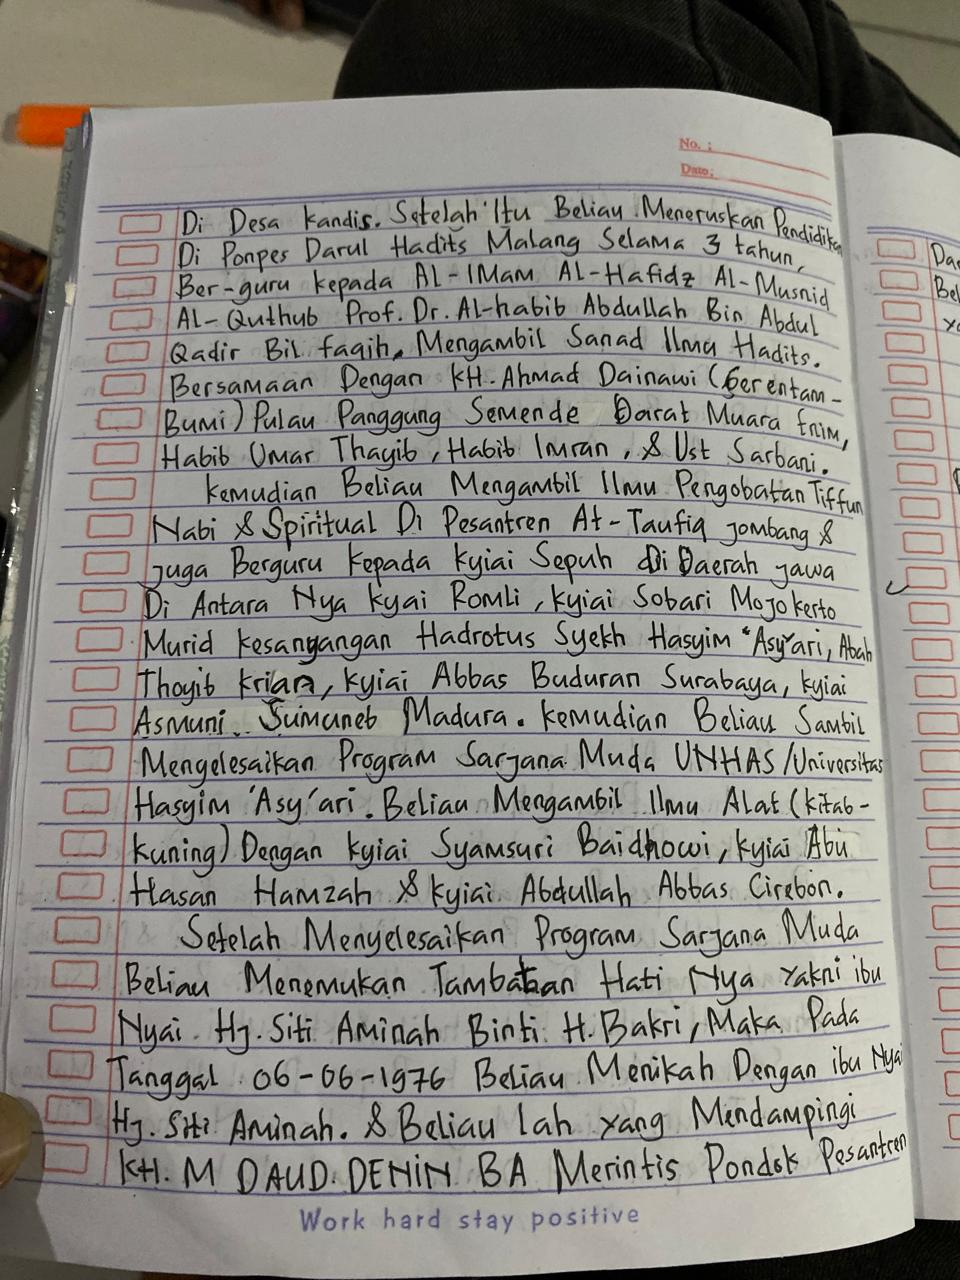 No. :
Date:
Di Desa kandis. Setelah Itu Beliau Meneruskan Pendidikan
Di Ponpes Darul Hadits Malang Selama 3 tahun,
Ber-guru kepada AL-IMam AL-Hafidz AL-Musnid
AL-Quthub Prof. Dr. Al-habib Abdullah Bin Abdul
Qadir Bil faqih, Mengambil Sanad Ilmu Hadits.
Bersamaan Dengan KH. Ahmad Dainawi (Gerentam-
Bumi) Pulau Panggung Semende Darat Muara Enim,
Habib Umar Thayib, Habib Imran, & Ust Sarbani.
kemudian Beliau Mengambil Ilmu Pengobatan Tiffun
Nabi & Spiritual Di Pesantren At-Taufiq Jombang &
Juga Berguru kepada kyiai Sepuh Di Daerah jawa
Di Antara Nya kyai Romli, kyiai Sobari Mojokerto
Murid kesangangan Hadrotus Syekh Hasyim 'Asy'ari, Abah
Thoyib krian, kyiai Abbas Buduran Surabaya, kyiai
Asmuni Sumuneb Madura. kemudian Beliau Sambil
Mengelesaikan Program Sarjana Muda UNHAS/Universitas
Hasyim 'Asy'ari. Beliau Mengambil Ilmu Alat (kitab-
kuning) Dengan kyiai Syamsuri Baidhowi, kyiai Abu
Hasan Hamzah & kyiai Abdullah Abbas Cirebon.
Setelah Menyelesaikan Program Sarjana Muda
Beliau Menemukan Tambatan Hati Nya yakni ibu
Nyai Hj. Siti Aminah Binti H. Bakri, Maka Pada
Tanggal 06-06-1976 Beliau Menikah Dengan ibu Nyai
Hj. Siti Aminah. & Beliau lah yang Mendampingi
KH. M DAUD DENIN BA Merintis Pondok Pesantren
Work hard stay positive